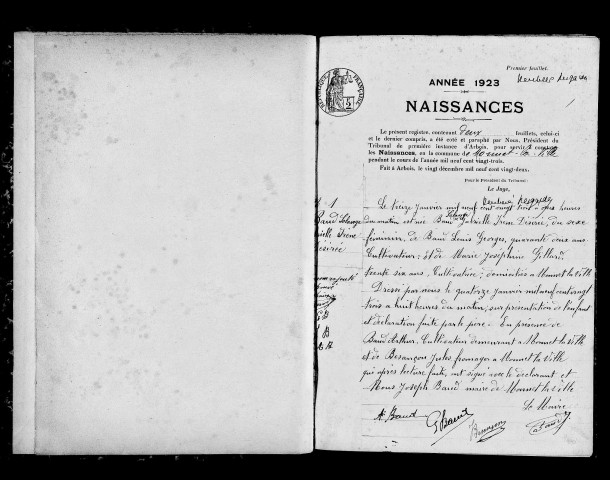 Premier feuillet.
ANNÉE 1923
NAISSANCES
Le présent registre, contenant deux feuillets, celui-ci
et le dernier compris, a été coté et paraphé par Nous, Président du
Tribunal de première instance d'Arbois, pour servir à constater
les Naissances, en la commune de Monnet-la-Ville
pendant le cours de l'année mil neuf cent vingt-trois.
Fait à Arbois, le vingt décembre mil neuf cent vingt-deux.
Pour le Président du Tribunal:
Le Juge,
1
Baud Solange
Irène
Désirée
Le treize Janvier mil neuf cent vingt trois à onze heures
du matin est née Baud Solange Gabrielle Irène Désirée, du sexe
féminin, de Baud Louis Georges, quarante deux ans
Cultivateur et de Marie Joséphine Gillard
trente six ans, Cultivatrice, domiciliés à Monnet la Ville
Dressé par nous le quatorze Janvier mil neuf cent vingt
trois à huit heures du matin, sur présentation de l'enfant
et déclaration faite par le père. En présence de
Baud Arthur, Cultivateur demeurant à Monnet la Ville
et de Besançon Jules fromager à Monnet la Ville
qui après lecture faite, ont signé avec le déclarant et
Nous Joseph Baud maire de Monnet la Ville
Le Maire
A. Baud
G Baud